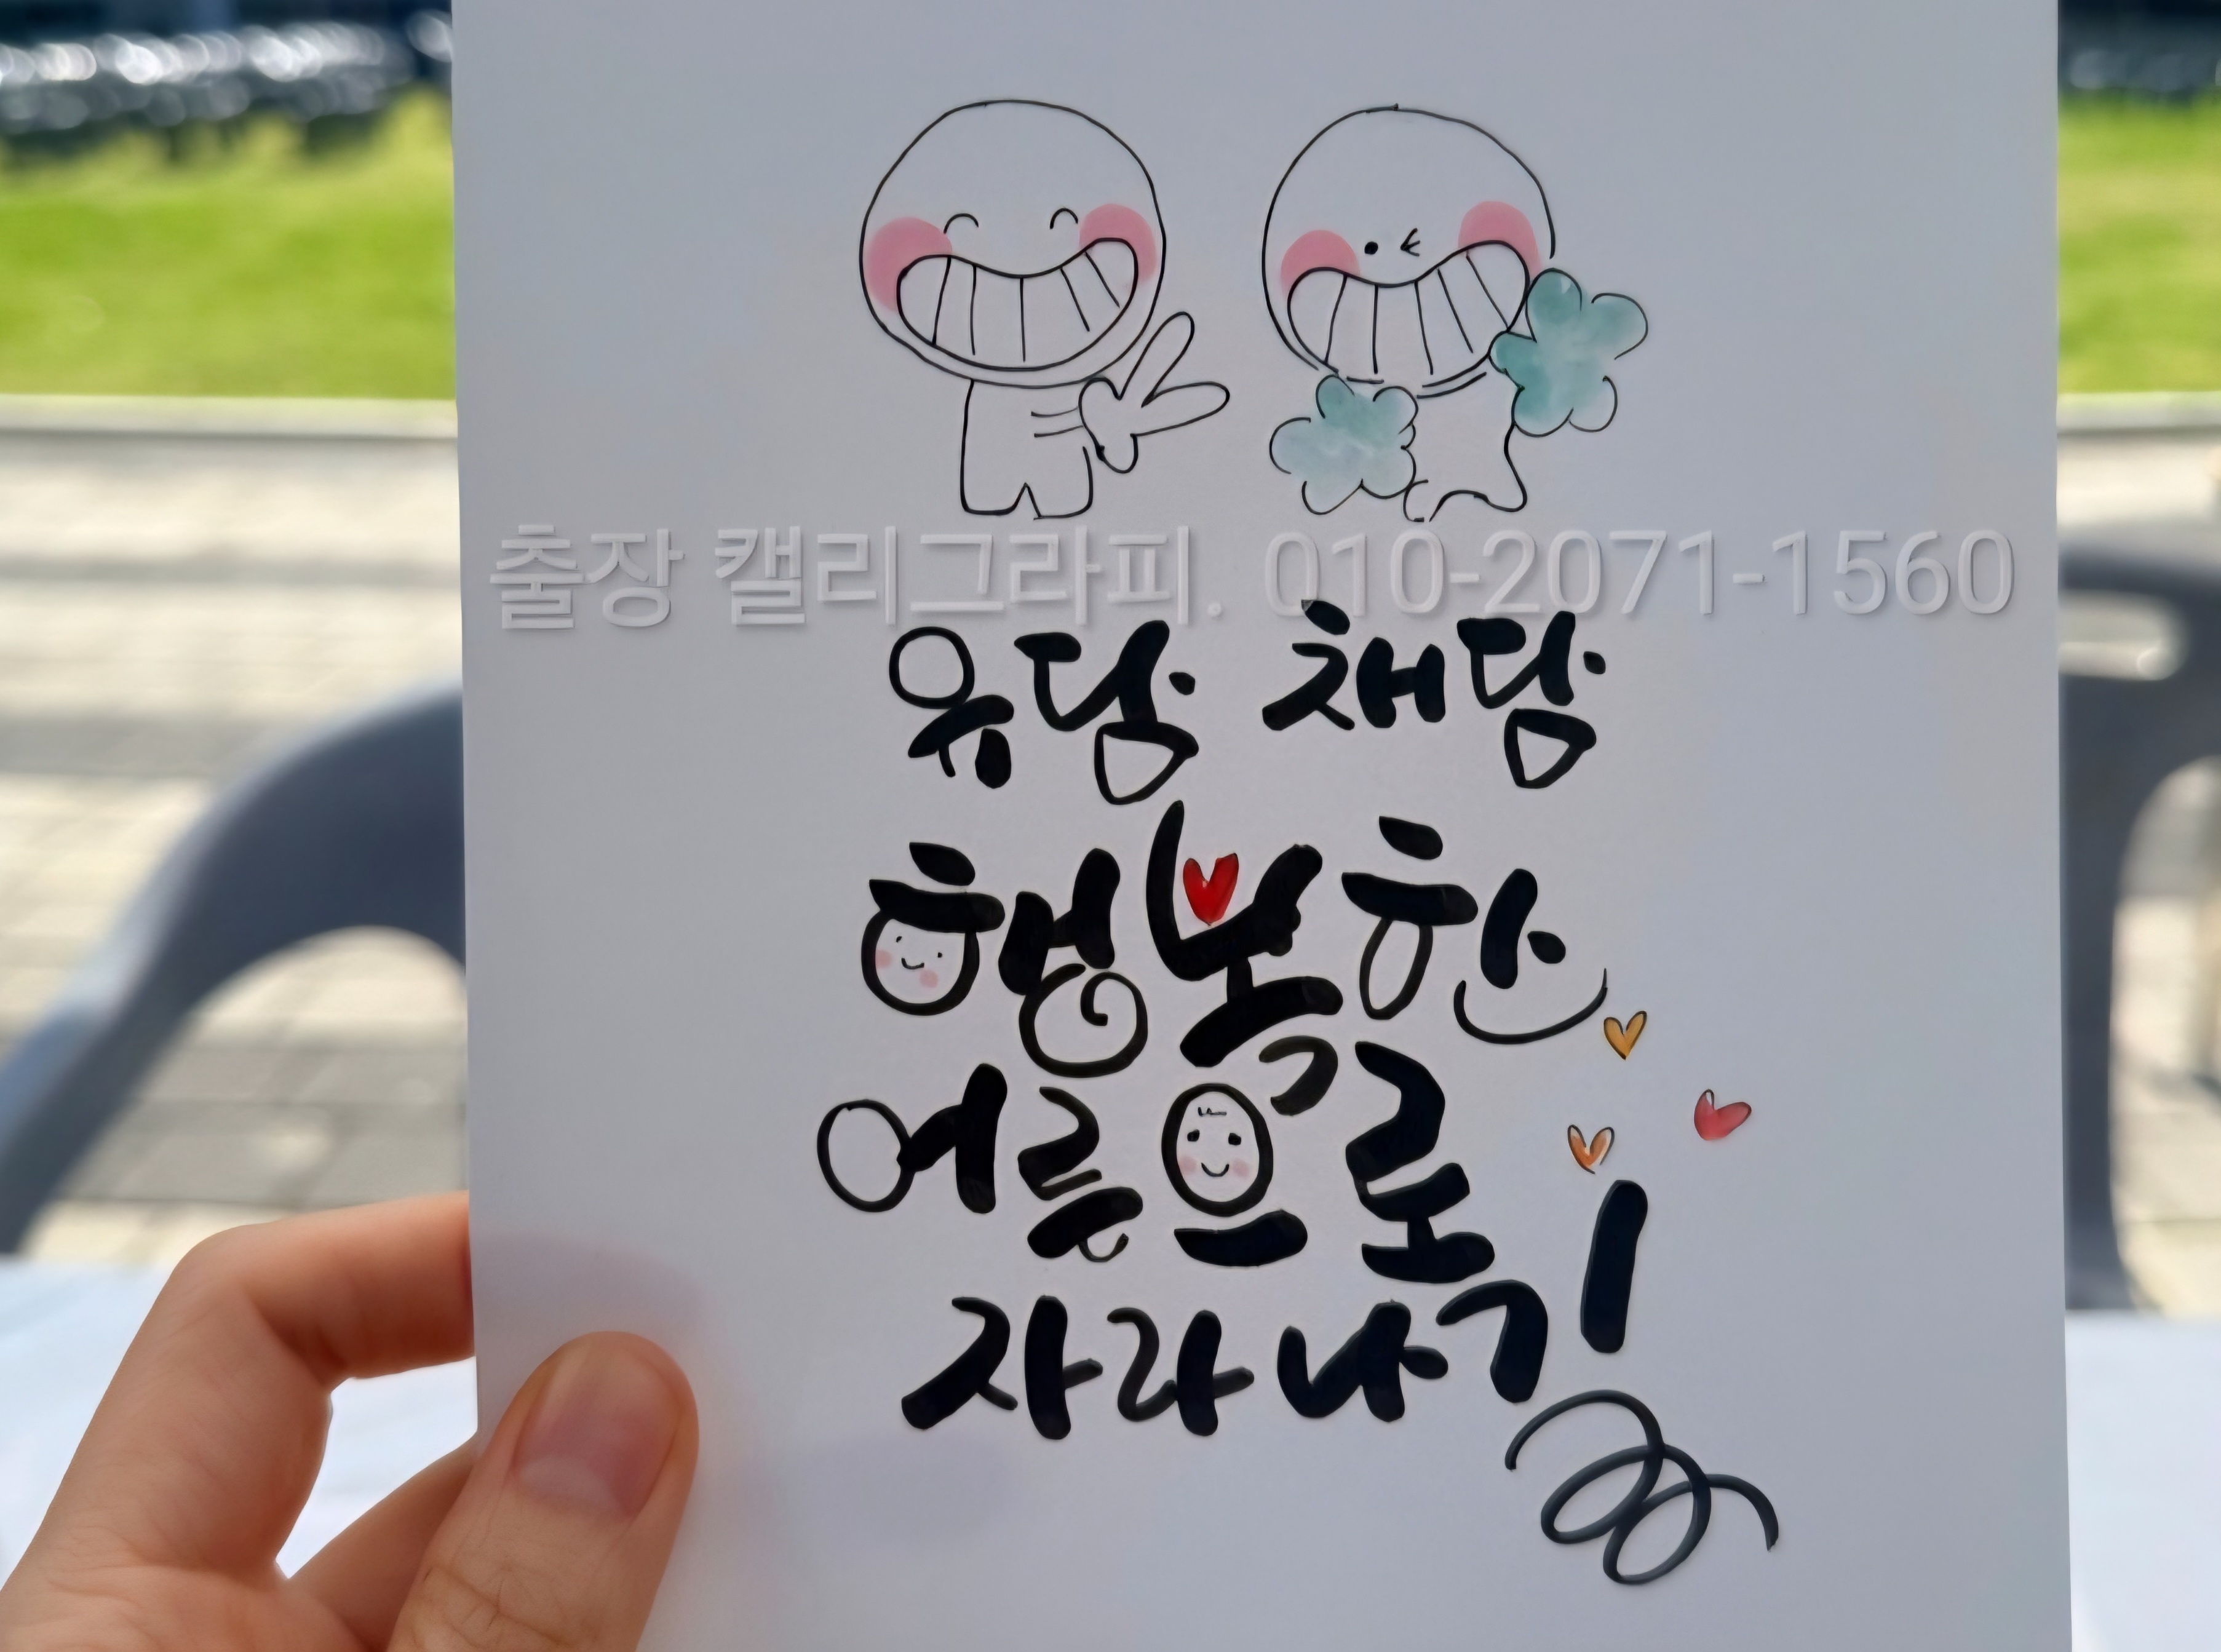 출장 캘리그라피. 010-2071-1560
유담 채담
행복한
어른으로
자라나기!